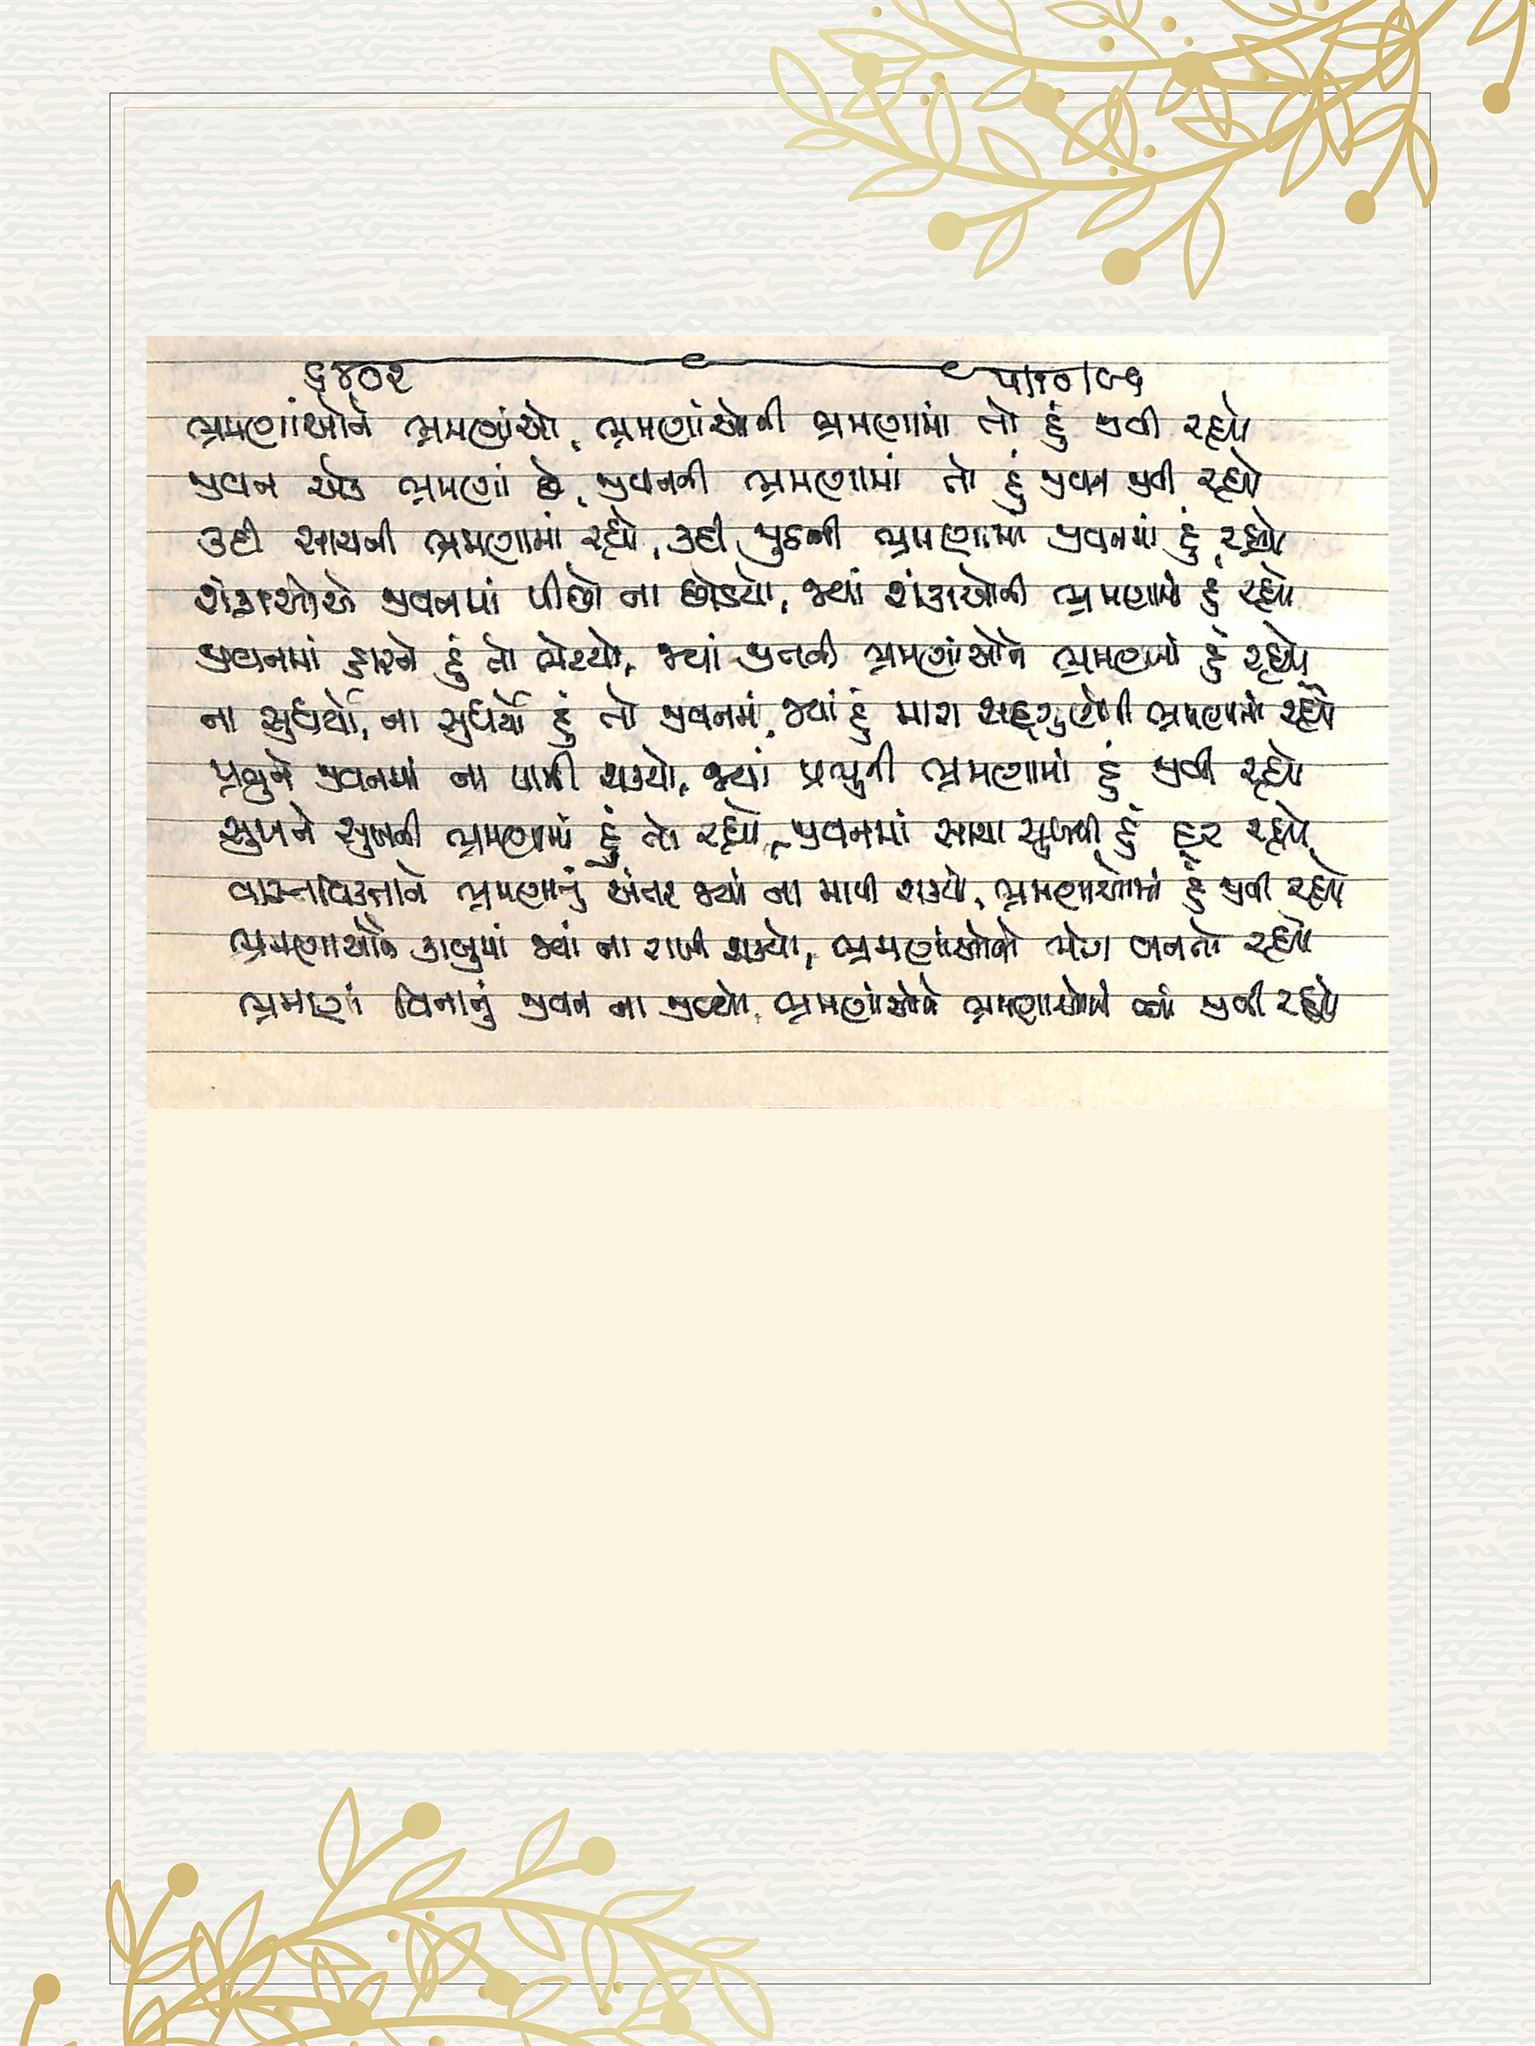 ૬૪૦૨ ૫/૧૦/૯૬
ભ્રમણાંઓને ભ્રમણાંઓ, ભ્રમણાંઓની ભ્રમણામાં તો હું જીવી રહ્યો
જીવન એક ભ્રમણાં છે, જીવનની ભ્રમણામાં તો હું જીવન જીવી રહ્યો
કદી સાચની ભ્રમણામાં રહ્યો, કદી જુઠની ભ્રમણામાં જીવનમાં હું રહ્યો
શંકાઓએ જીવનમાં પીછો ના છોડયો, જ્યાં શંકાઓની ભ્રમણામાં હું રહ્યો
જીવનમાં હારને હું તો ભેટયો, જ્યાં જીતની ભ્રમણાંઓને ભ્રમણામાં હું રહ્યો
ના સુધર્યો, ના સુધર્યો હું તો જીવનમાં, જ્યાં હું મારા સદ્ગુણોની ભ્રમણામાં રહ્યો
પ્રભુને જીવનમાં ના પામી શક્યો, જ્યાં પ્રભુની ભ્રમણામાં હું જીવી રહ્યો
સુખને સુખની ભ્રમણામાં હું તો રહ્યો, જીવનમાં સાચા સુખથી હું દૂર રહ્યો
વાસ્તવિકતાને ભ્રમણાનું અંતર જ્યાં ના માપી શક્યો, ભ્રમણાઓમાં હું જીવી રહ્યો
ભ્રમણાઓને કાબુમાં જ્યાં ના રાખી શક્યો, ભ્રમણાંઓનો ભોગ બનતો રહ્યો
ભ્રમાણાં વિનાનું જીવન ના જીવ્યો, ભ્રમણાંઓને ભ્રમણાઓમાં જીવી રહ્યો